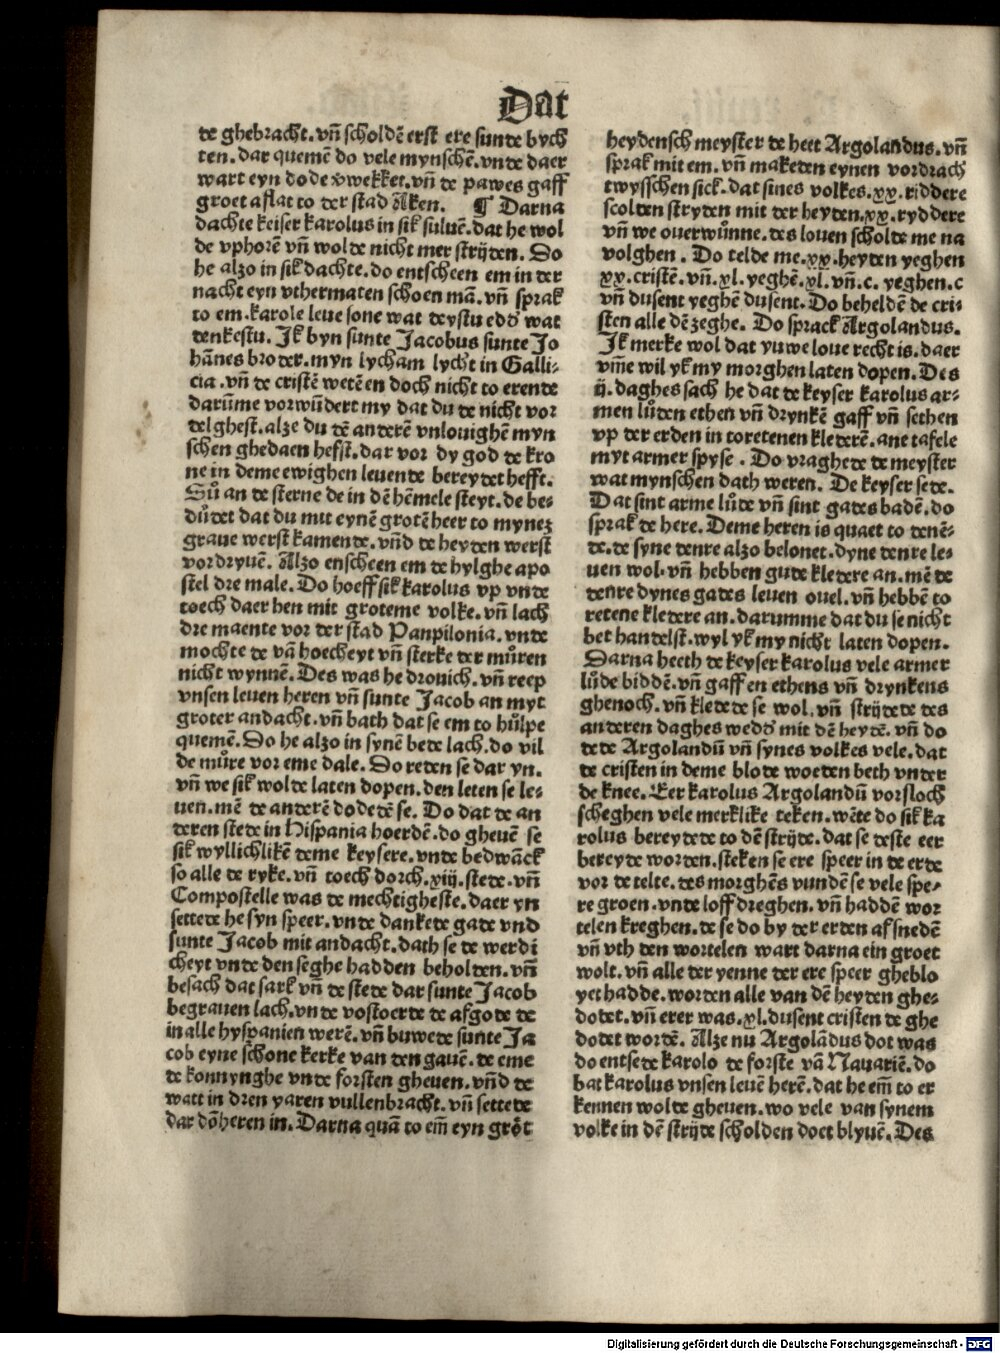 Dat
de ghebracht. vñ scholdē erst ere sunde bych
ten. dar quemē do vele mynschē. vnde daer
wart eyn dode vwekket. vñ de pawes gaff
groet aflat to der stad Aken. ¶ Darna
dachte keiser karolus in sik suluē. dat he wol
de vphorē vñ wolde nicht mer strijden. Do
he alzo in sik dachte. do entscheen em in der
nacht eyn vthermaten schoen mā. vñ sprak
to em. karole leue sone wat deystu eddʹ wat
denkestu. Jk byn sunte Jacobus sunte Jo
hānes broder. myn lycham lycht in Galli⸗
cia. vñ de cristē wetē en doch nicht to erende
darūme vorwūdert my dat du de nicht vor
delghest. alze du dē anderē vnlouighē myn
schen ghedaen hefst. dar vor dy god de kro
ne in deme ewighen leuende bereydet hefft.
Suͦ an de sterne de in dē hēmele steyt. de be⸗
duͦdet dat du mit eynē grotē heer to mynez
graue werst kamende. vñd de heyden werst
vordryuē. Alzo enscheen em de hylghe apo
stel dre male. Do hoeff sik karolus vp vnde
toech daer hen mit groteme volke. vñ lach
dre maente vor der stad Panpilonia. vnde
mochte de vā hoecheyt vñ sterke der muͦren
nicht wynnē. Des was he drouich. vñ reep
vnsen leuen heren vñ sunte Jacob an myt
groter andacht. vñ bath dat se em to huͦlpe
quemē. Do he alzo in synē bede lach. do vil
de muͦre vor eme dale. Do reden se dar yn.
vñ we sik wolde laten dopen. den leten se le⸗
uen. mē de anderē dodedē se. Do dat de an
deren stede in Hispania hoerdē. do gheuē se
sik wyllichlikē deme keysere. vnde bedwāck
so alle de ryke. vñ toech dorch. xiij. stede. vñ
Compostelle was de mechtigheste. daer yn
settede he syn speer. vnde dankede gade vnd
sunte Jacob mit andacht. dath se de werdi
cheyt vnde den seghe hadden beholden. vñ
besach dat sark vñ de stede dar sunte Jacob
begrauen lach. vnde vostoerde de afgode de
in alle hyspanien werē. vñ buwede sunte Ja
cob eyne schone kerke van den gauē. de eme
de konnynghe vnde forsten gheuen. vñd de
watt in dren yaren vullenbracht. vñ settede
dar dōheren in. Darna quā to em̄ eyn groͤt
heydensch meyster de heet Argolandus. vñ
sprak mit em. vñ makeden eynen vordrach
twysschen sick. dat sines volkes. xx. riddere
scolden stryden mit der heyden. xx. ryddere
vñ we ouerwuͦnne. des louen scholde me na
volghen. Do telde me. xx. heyden yeghen
xx. cristē. vñ. xl. yeghē. xl. vñ. c. yeghen. c
vñ dusent yeghē dusent. Do beheldē de cri⸗
sten alle dē zeghe. Do sprack Argolandus.
Jk merke wol dat yuwe loue recht is. daer
vm̄e wil yk my morghen laten dopen. Des
ij. daghes sach he dat de keyser karolus ar⸗
men luͦden ethen vñ drynkē gaff vñ sethen
vp der erden in toretenen klederē. ane tafele
myt armer spyse. Do vraghede de meyster
wat mynschen dath weren. De keyser sede.
Dat sint arme luͦde vñ sint gades badē. do
sprak de here. Deme heren is quaet to denē⸗
de. de syne denre alzo belonet. dyne denre le⸗
uen wol. vñ hebben gude kledere an. mē de
denre dynes gades leuen ouel. vñ hebbē to
retene kledere an. darumme dat du se nicht
bet handelst. wyl yk my nicht laten dopen.
Darna heeth de keyser karolus vele armer
luͦde biddē. vñ gaff en ethens vñ drynkens
ghenoch. vñ kledede se wol. vñ strijdede des
anderen daghes weddʹ mit dē heydē. vñ do
dede Argolandū vñ synes volkes vele. dat
de cristen in deme blode woeden beth vnder
de knee. Eer karolus Argolandū vorsloch
scheghen vele merklike teken. wēte do sik ka
rolus bereydede to dē strijde. dat se deste eer
bereyde worden. steken se ere speer in de erde
vor de telte. des morghēs vundē se vele spe⸗
re groen. vnde loff dreghen. vñ haddē wor
telen kreghen. de se do by der erden afsnedē
vñ vth den wortelen wart darna ein groet
wolt. vñ alle der yenne der ere speer gheblo
yet hadde. worden alle van dē heyden ghe⸗
dodet. vñ erer was. xl. dusent cristen de ghe
dodet wordē. Alze nu Argolādus dot was
do entsede karolo de forste vā Nauariē. do
bat karolus vnsen leuē herē. dat he em̄ to er
kennen wolde gheuen. wo vele van synem
volke in dē strijde scholden doet blyuē. Des
Digitalisierung gefördert durch die Deutsche Forschungsgemeinschaft - DFG